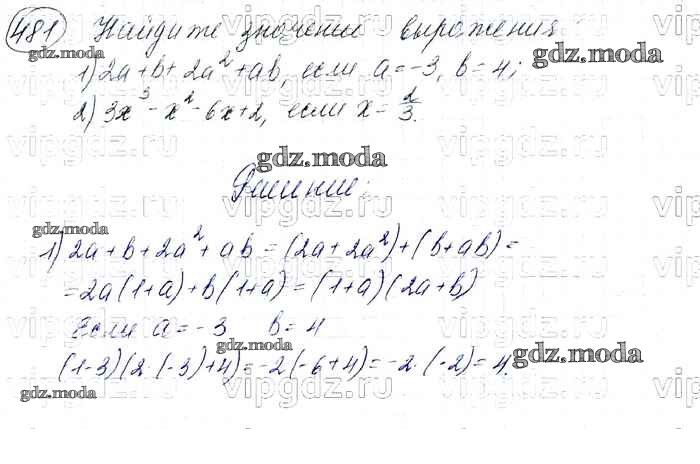 481 Найдите значение выражения
1) 2a+b+2a²+ab, если a=-3, b=4;
2) 3x³-x²-6x+2, если x=2/3.
gdz.moda
Решение:
1) 2a+b+2a²+ab=(2a+2a²)+(b+ab)=
=2a(1+a)+b(1+a)=(1+a)(2a+b)
Если a=-3 b=4
(1-3)(2·(-3)+4)=-2(-6+4)=-2·(-2)=4.
gdz.moda
gdz.moda
gdz.moda
gdz.moda
gdz.moda
gdz.moda
vipgdz.ru
vipgdz.ru
vipgdz.ru